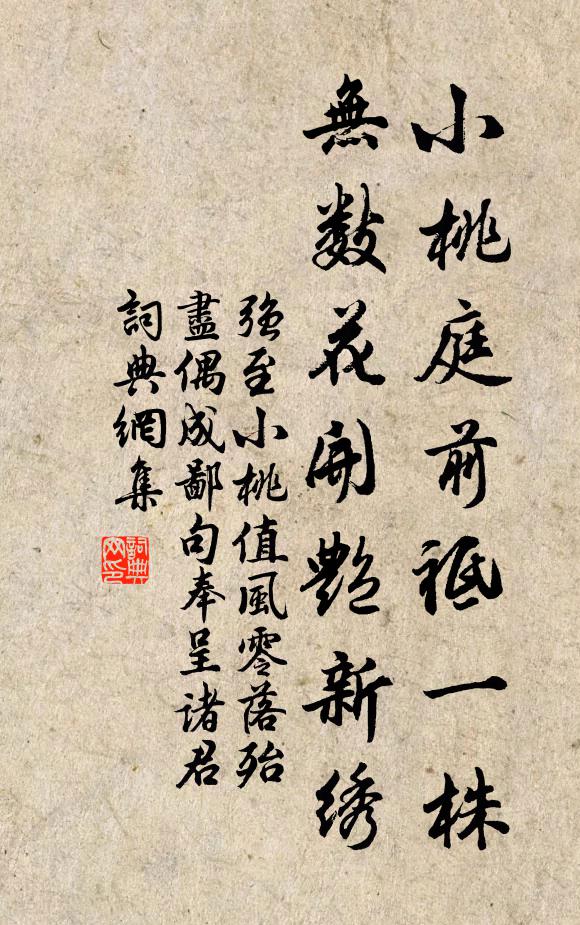 小桃庭前祗一株
無数花開艶新绣
强至小桃值風零落殆
盡偶成鄙句奉呈诸君
詞典網集
詞典
网印